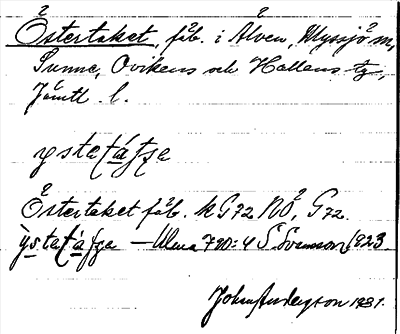 Östertaket, fäb. i Älven, Myssjö m,
Sunne, Ovikens och Hallens tg,
Jämtl. l.
ystatátsa
Östertaket fäb. k G72 NÖ, G72.
ỳstatátsa — Ulma 790:4 S. Svensson 1923.
John Anderson 1931.